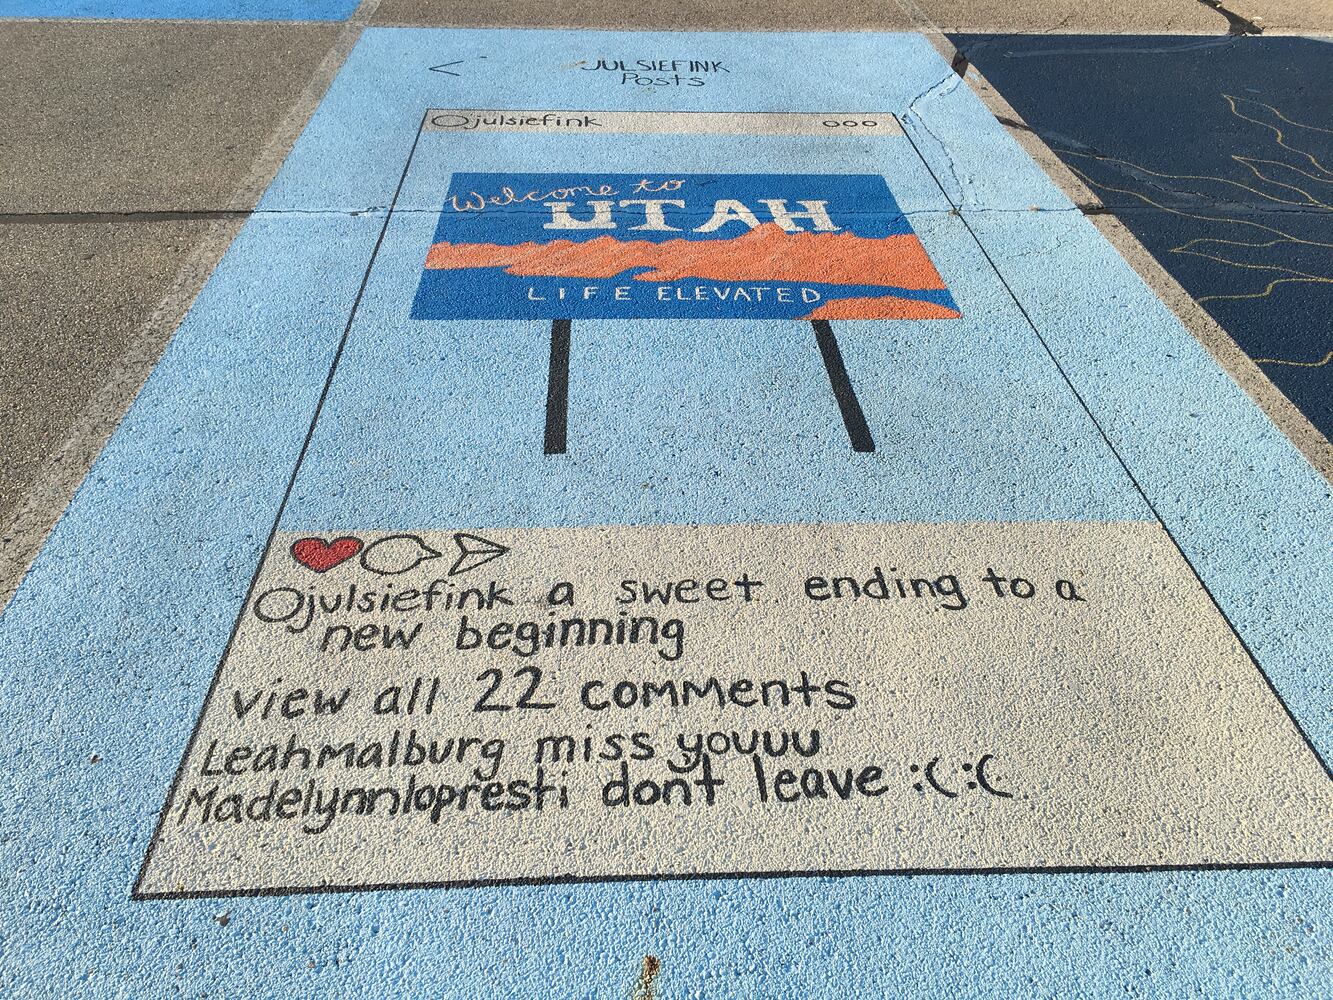 < JULSIEFINK
Posts
julsiefink ooo
Welcome to
UTAH
LIFE ELEVATED
julsiefink a sweet ending to a
new beginning
view all 22 comments
Leahmalburg miss youuu
Madelynnlopresti don't leave :( :(